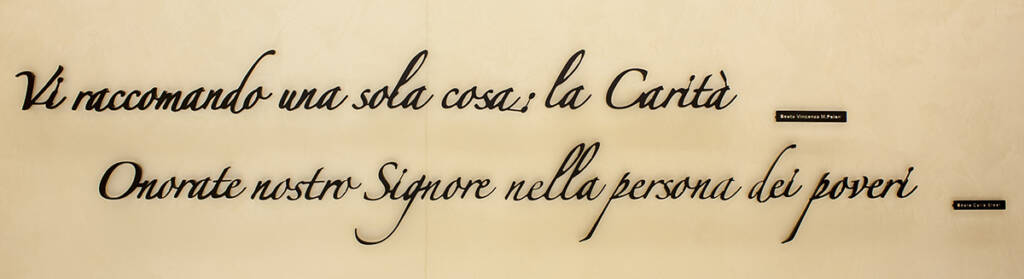 Vi raccomando una sola cosa: la Carità
Beata Vincenza M.Poloni
Onorate nostro Signore nella persona dei poveri
Beato Carlo Steeb